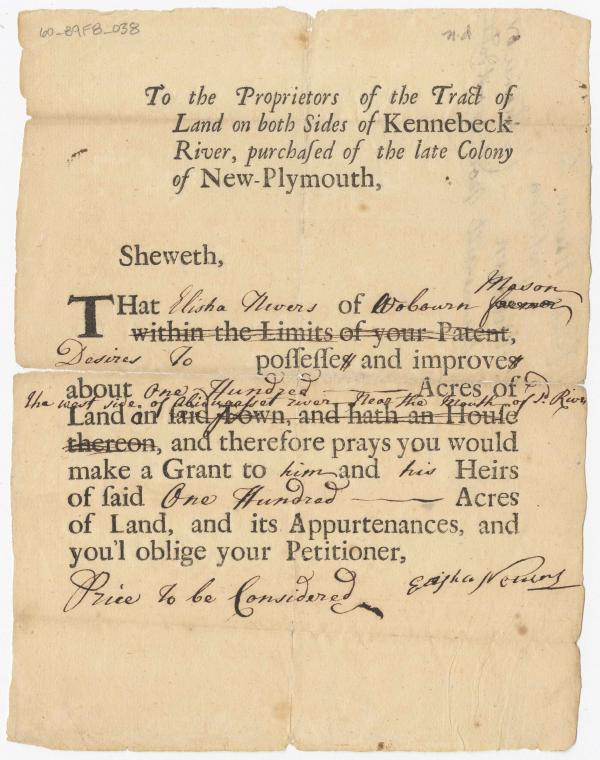 60-89F8-038
n.d
To the Proprietors of the Tract of
Land on both Sides of Kennebeck-
River, purchaſed of the late Colony
of New-Plymouth,
Sheweth,
THat Elisha Nevers of Wobourn Mason
within the Limits of your Patent,
Desires To poſſeſſes and improves
about One Hundred Acres of
the west side of river near the Mouth of sd. River
Land in ſaid Town, and hath an Houſe
thereon, and therefore prays you would
make a Grant to him and his Heirs
of ſaid One Hundred Acres
of Land, and its Appurtenances, and
you'l oblige your Petitioner,
Price To be Considered
Elisha Nevers